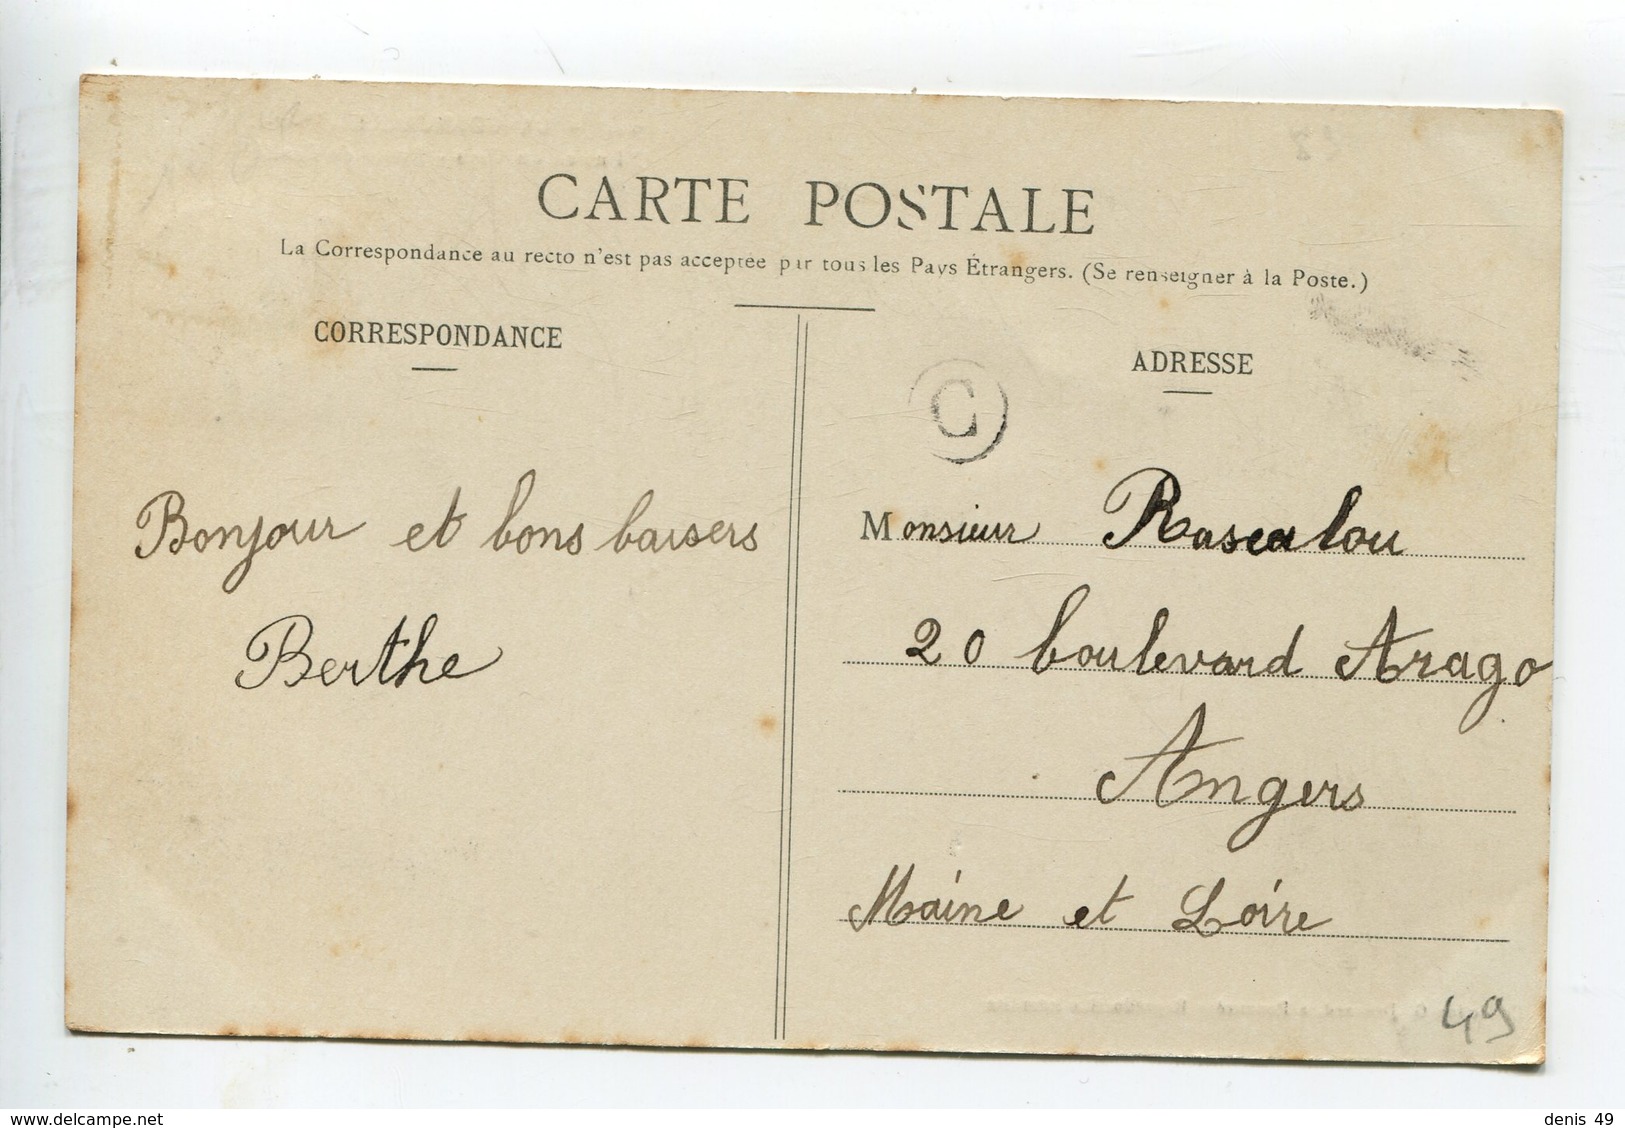 CARTE POSTALE
La Correspondance au recto n'est pas acceptée par tous les Pays Étrangers. (Se renseigner à la Poste.)
CORRESPONDANCE
ADRESSE
C
Bonjour et bons baisers
Berthe
Monsieur Rascalou
20 boulevard Arago
Angers
Maine et Loire
49
www.delcampe.net
denis 49